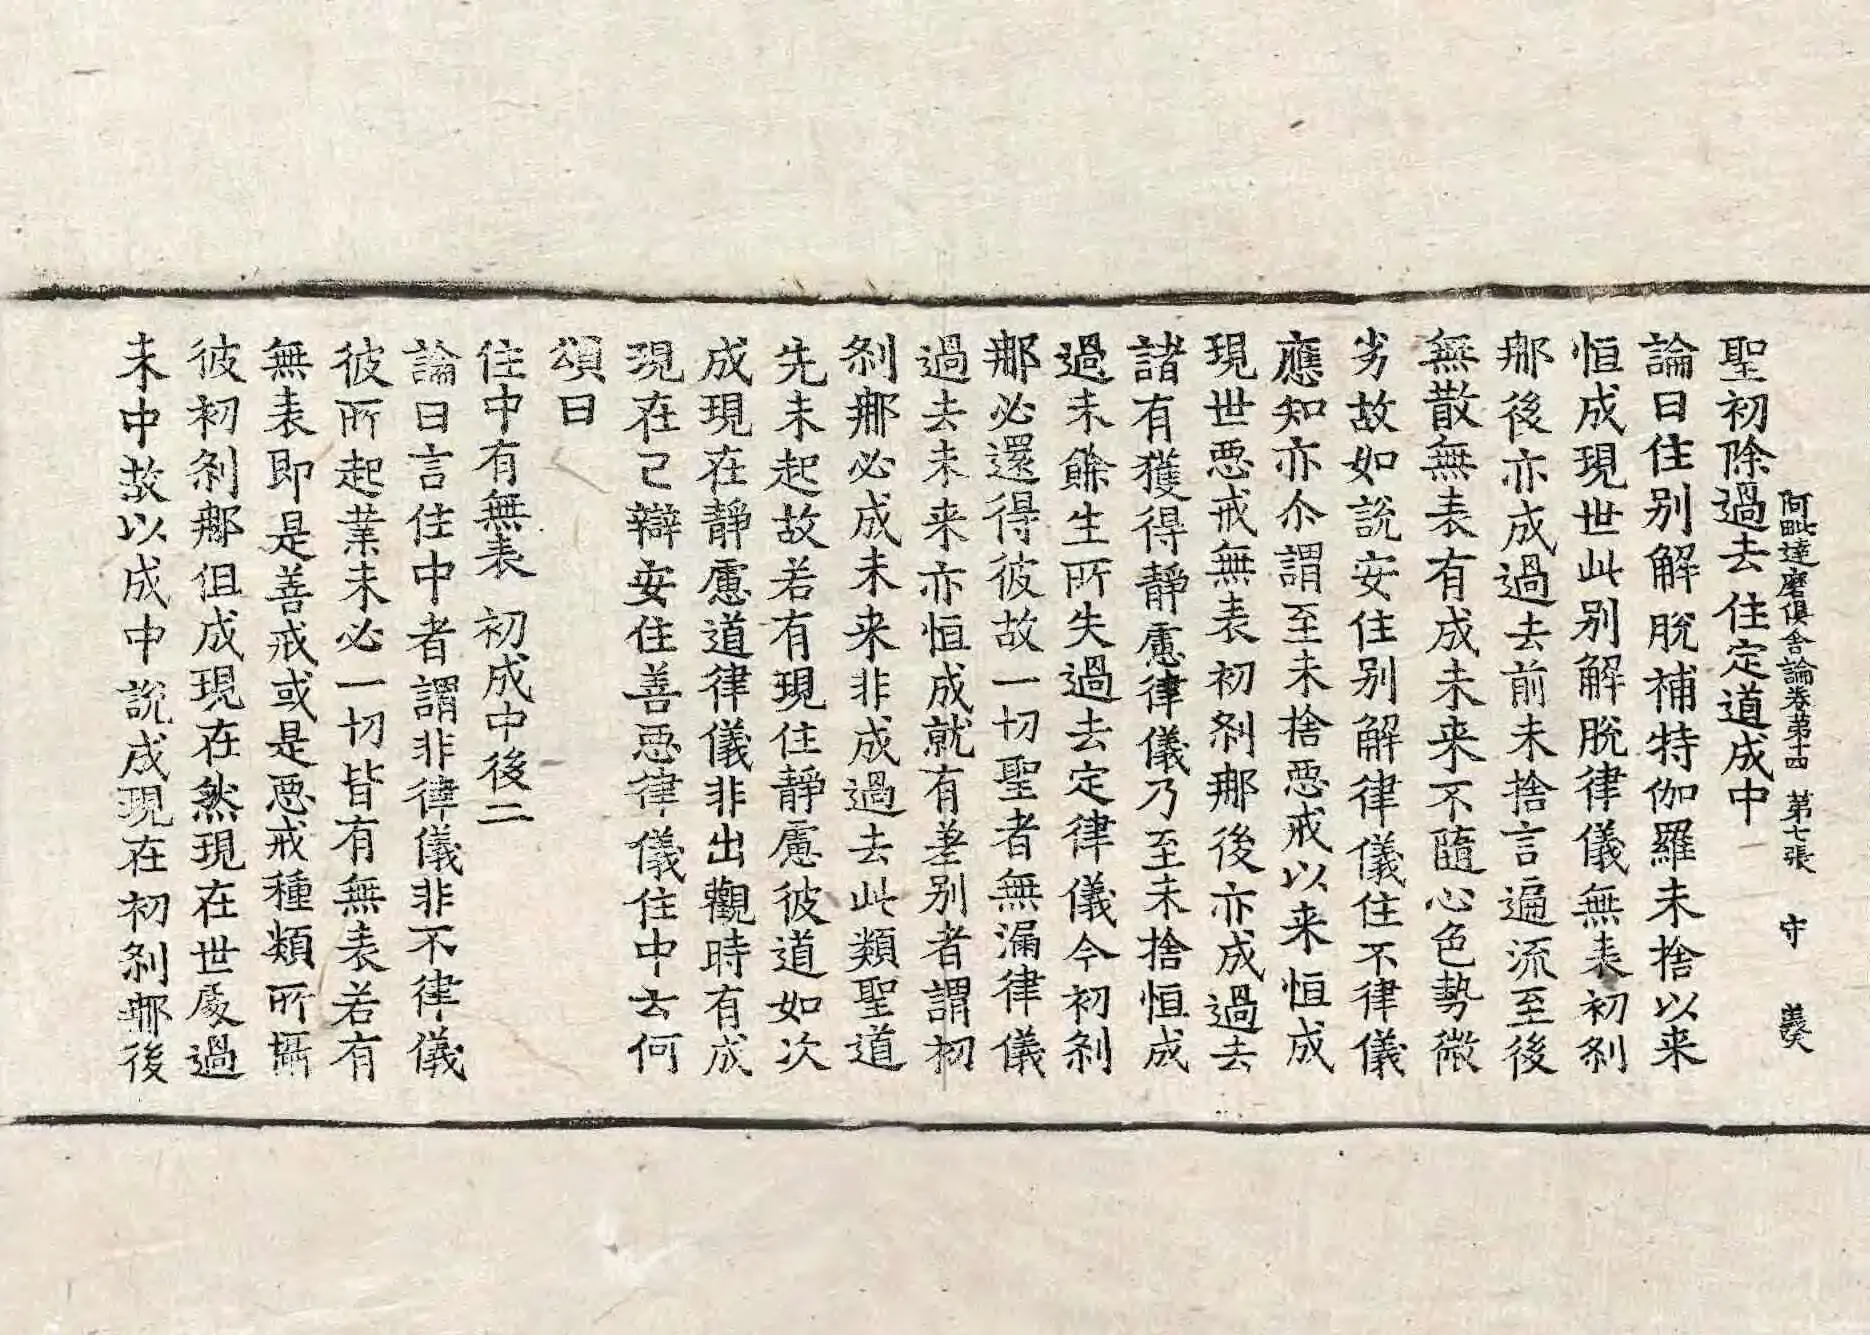 阿毗達磨俱舍論卷第十四　第七張　守　義
聖初除過去　住定道成中
論曰住别解脫補特伽羅未捨以来
恒成現世此别解脫律儀無表初刹
那後亦成過去前未捨言遍流至後
無散無表有成未来不隨心色勢微
劣故如說安住别解律儀住不律儀
應知亦尒謂至未捨惡戒以来恒成
現世惡戒無表初刹那後亦成過去
諸有獲得靜慮律儀乃至未捨恒成
過未餘生所失過去定律儀今初刹
那必還得彼故一切聖者無漏律儀
過去未来亦恒成就有差别者謂初
刹那必成未来非成過去此類聖道
先未起故若有現住靜慮彼道如次
成現在靜慮道律儀非出觀時有成
現在已辯安住善惡律儀住中云何
頌曰
住中有無表　初成中後二
論曰言住中者謂非律儀非不律儀
彼所起業未必一切皆有無表若有
無表即是善戒或是惡戒種類所攝
彼初刹那但成現在然現在世處過
未中故以成中說成現在初刹那後